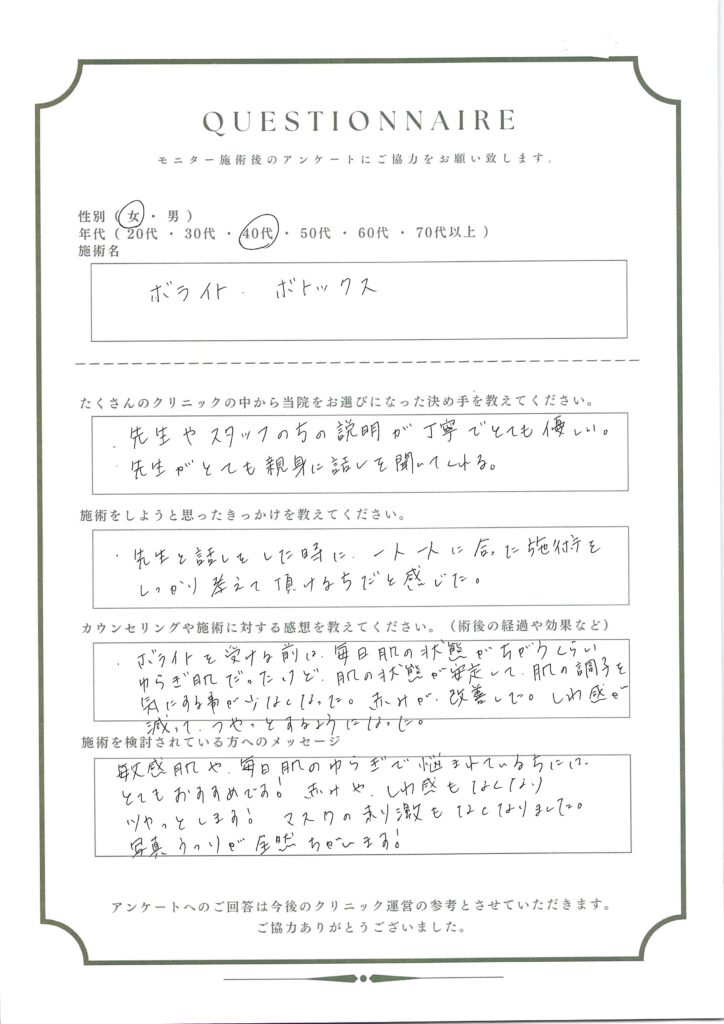 QUESTIONNAIRE
モニター施術後のアンケートにご協力をお願い致します。
性別 ( 女 ・ 男 )
年代 ( 20代 ・ 30代 ・ 40代 ・ 50代 ・ 60代 ・ 70代以上 )
施術名
ボライト . ボトックス
たくさんのクリニックの中から当院をお選びになった決め手を教えてください。
・先生やスタッフの方の説明が丁寧でとても優しい。
・先生がとても親身に話しを聞いてくれる。
施術をしようと思ったきっかけを教えてください。
・先生と話しをした時に、一人一人に合った施術を
しっかり考えて頂ける方だと感じた。
カウンセリングや施術に対する感想を教えてください。（術後の経過や効果など）
・ボライトを受ける前は、毎日肌の状態がちがうくらい
ゆらぎ肌だったけど、肌の状態が安定して、肌の調子を
気にする事が少なくなった。赤みが、改善した。しわ感が
減って、つやっとするようになった。
施術を検討されている方へのメッセージ
敏感肌や、毎日肌のゆらぎで悩まれている方には、
とてもおすすめです! 赤みや、しわ感もなくなり
ツヤっとします! マスクの刺激もなくなりました。
写真うつりが全然ちがいます!
アンケートへのご回答は今後のクリニック運営の参考とさせていただきます。
ご協力ありがとうございました。